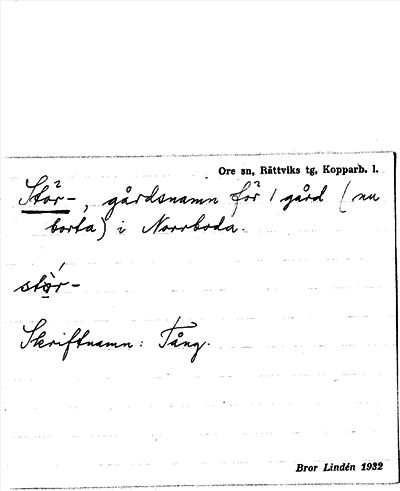 Ore sn, Rättviks tg, Kopparb. l.
Stör-, gårdsnamn för 1 gård (nu
borta) i Norrboda.
stö̀r-
Skriftnamn: Tång.
Bror Lindén 1932